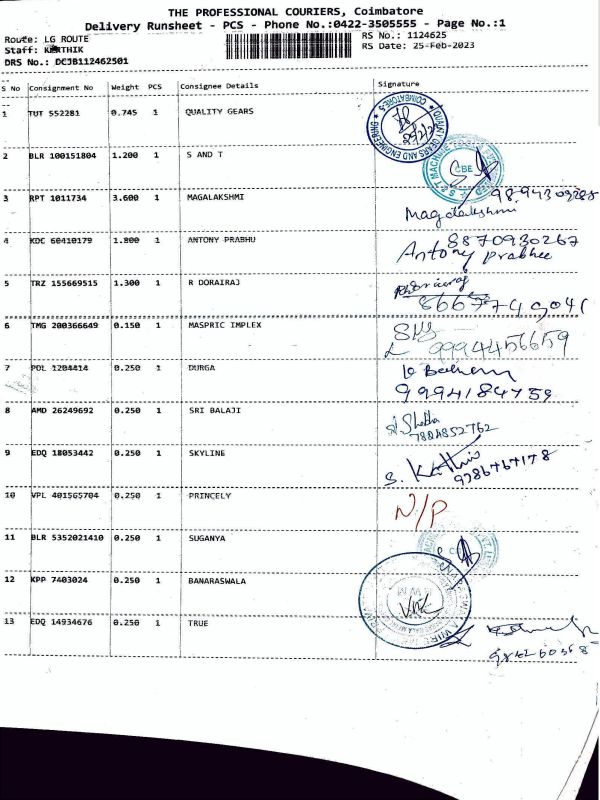 THE PROFESSIONAL COURIERS, Coimbatore
Delivery Runsheet - PCS - Phone No.:0422-3505555 - Page No.:1
Route: LG ROUTE RS No.: 1124625
Staff: KARTHIK RS Date: 25-Feb-2023
DRS No.: DCJB112462501
S No Consignment No Weight PCS Consignee Details Signature
1 TUT 552281 0.745 1 QUALITY GEARS
2 BLR 100151804 1.200 1 S AND T
CBE
3 RPT 1011734 3.600 1 MAGALAKSHMI
Magalakshmi
4 KDC 60410179 1.800 1 ANTONY PRABHU 8870930267
Antony Prabhu
5 TRZ 155669515 1.300 1 R DORAIRAJ
8667749041
6 TMG 200366649 0.150 1 MASPRIC IMPLEX
9994456659
7 POL 1204414 0.250 1 DURGA
9994184759
8 AMD 26249692 0.250 1 SRI BALAJI
7884852762
9 EDQ 18053442 0.250 1 SKYLINE S. Karthi
9786767178
10 VPL 401565704 0.250 1 PRINCELY N/P
11 BLR 5352021410 0.250 1 SUGANYA
12 KPP 7403024 0.250 1 BANARASWALA
13 EDQ 14934676 0.250 1 TRUE